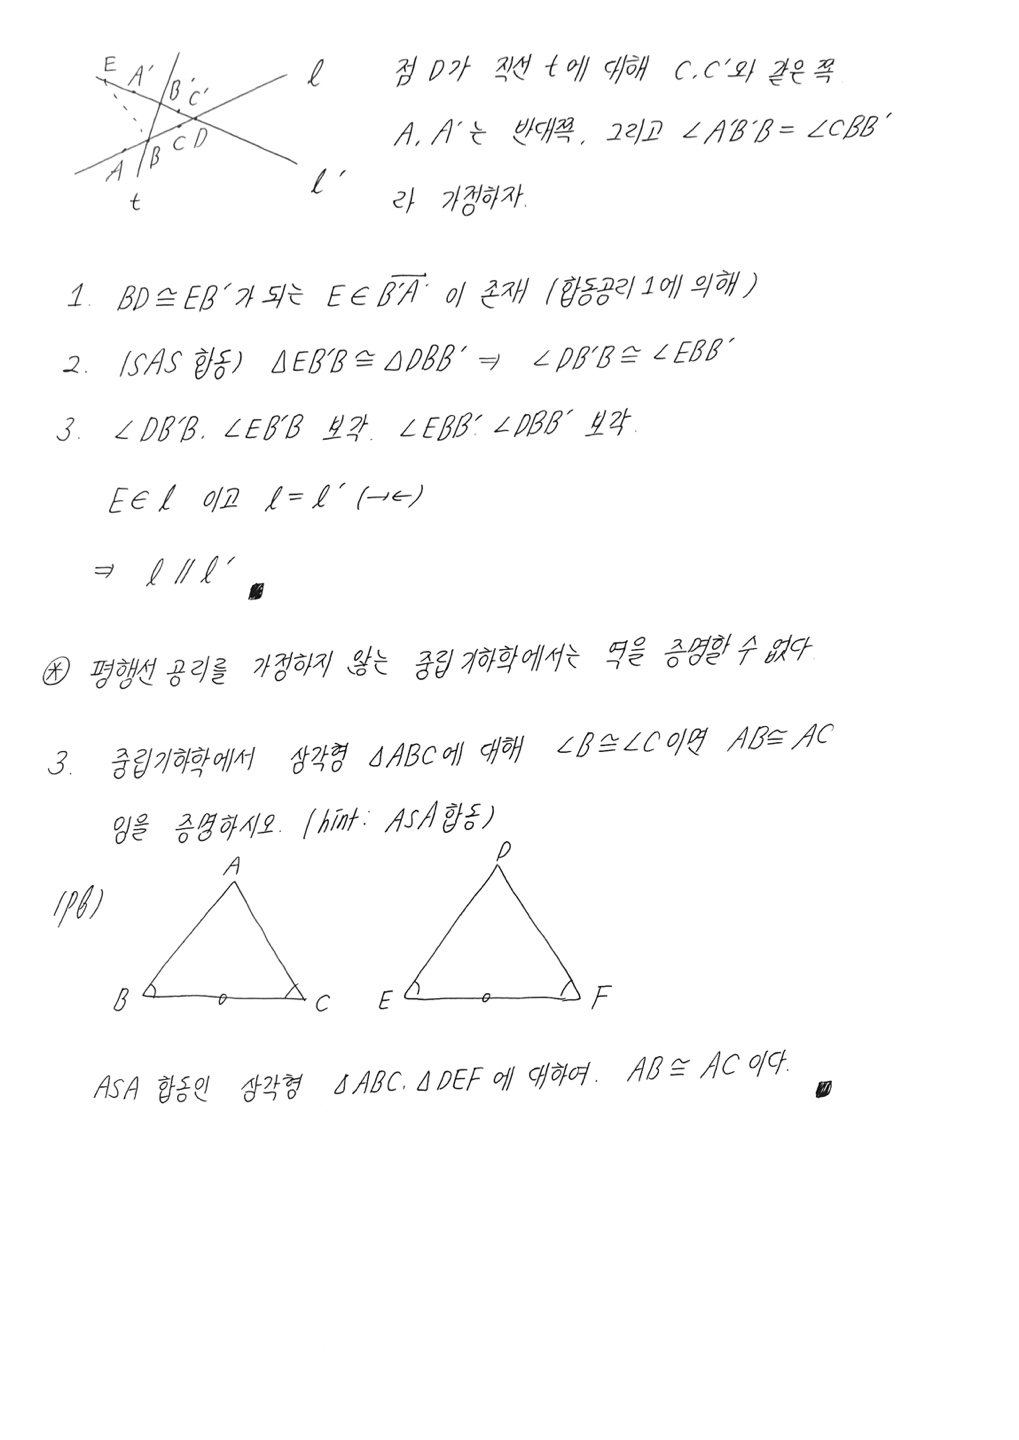 E A′ B′ C′ l
A B C D l′
t
점 D가 직선 t에 대해 C, C′와 같은 쪽
A, A′는 반대쪽, 그리고 ∠A′B′B = ∠CBB′
라 가정하자.
1. BD≅EB′가 되는 E∈B′A′ 이 존재 (합동공리 1에 의해)
2. (SAS 합동) ΔEB′B≅ΔDBB′ ⇒ ∠DB′B≅∠EBB′
3. ∠DB′B, ∠EB′B 보각. ∠EBB′, ∠DBB′ 보각.
E∈l 이고 l=l′ (→←)
⇒ l // l′
⊛ 평행선 공리를 가정하지 않는 중립기하학에서는 역을 증명할 수 없다.
3. 중립기하학에서 삼각형 ΔABC에 대해 ∠B≅∠C이면 AB≅AC
임을 증명하시오. (hint: ASA 합동)
(pf)
A D
B C E F
ASA 합동인 삼각형 ΔABC, ΔDEF에 대하여, AB≅AC이다.